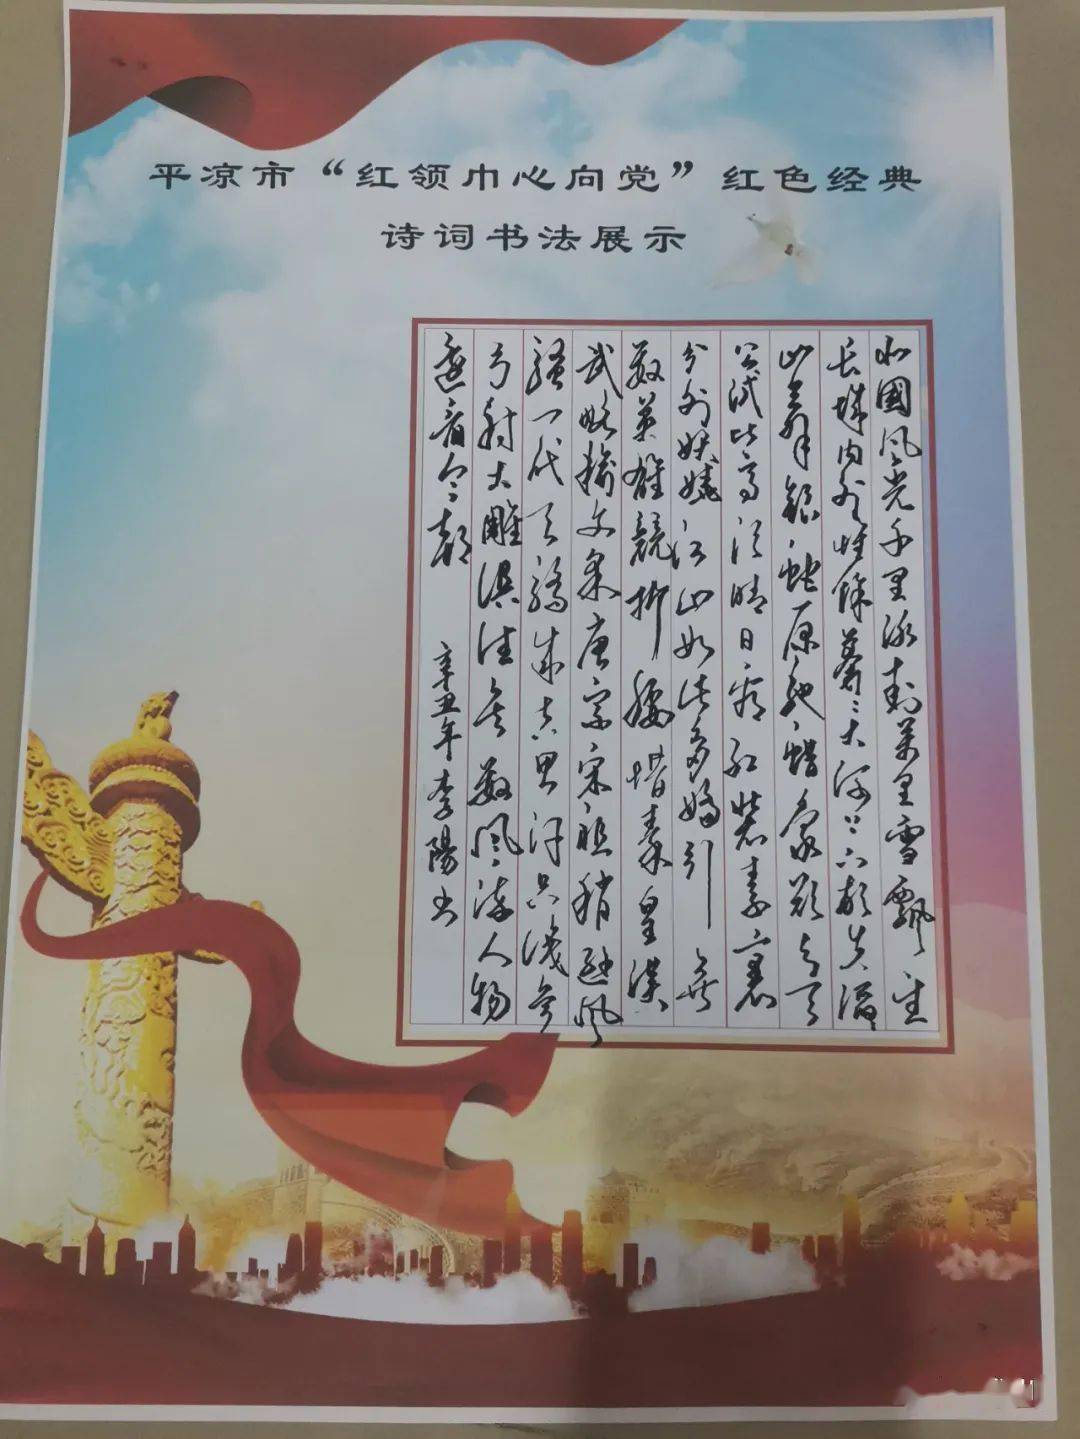 平凉市“红领巾心向党”红色经典
诗词书法展示
北國风光千里冰封万里雪飘望
长城内外惟馀莽〻大河上下顿失滔
山舞银蛇原驰蜡象欲与天
公试比高须晴日看红装素裹
分外妖娆江山如此多娇引无
数英雄競折腰惜秦皇漢
武略输文采唐宗宋祖稍逊风
骚一代天骄成吉思汗只识弯
弓射大雕俱往矣数风流人物
还看今朝 辛丑年李陽书